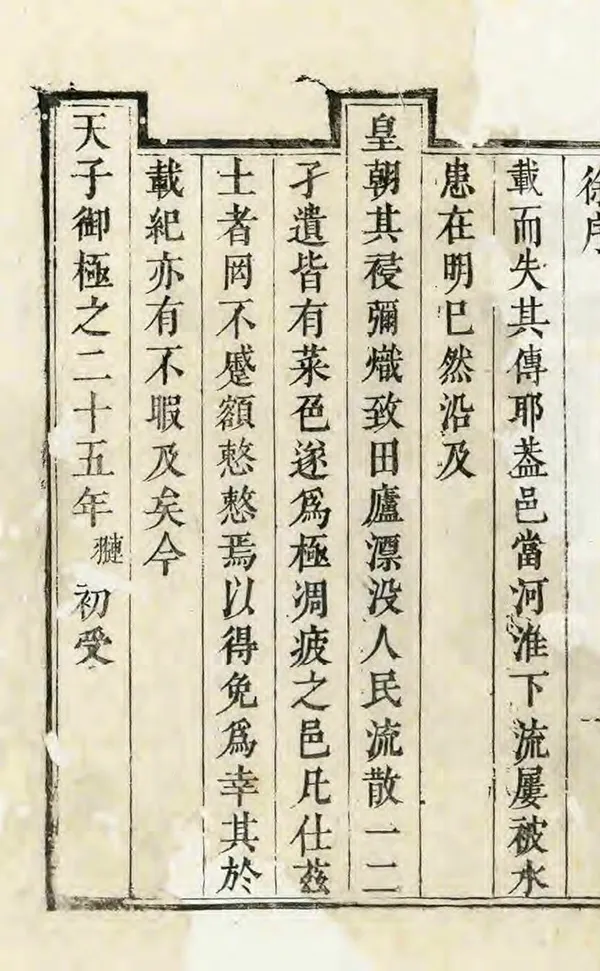 徐序
載而失其傳耶葢邑當河淮下流屢被水
患在明已然沿及
皇朝其祲彌熾致田廬漂没人民流散一二
孑遺皆有菜色遂爲極凋疲之邑凡仕茲
士者罔不蹙額慭慭焉以得免爲幸其於
載紀亦有不暇及矣今
天子御極之二十五年翴初受